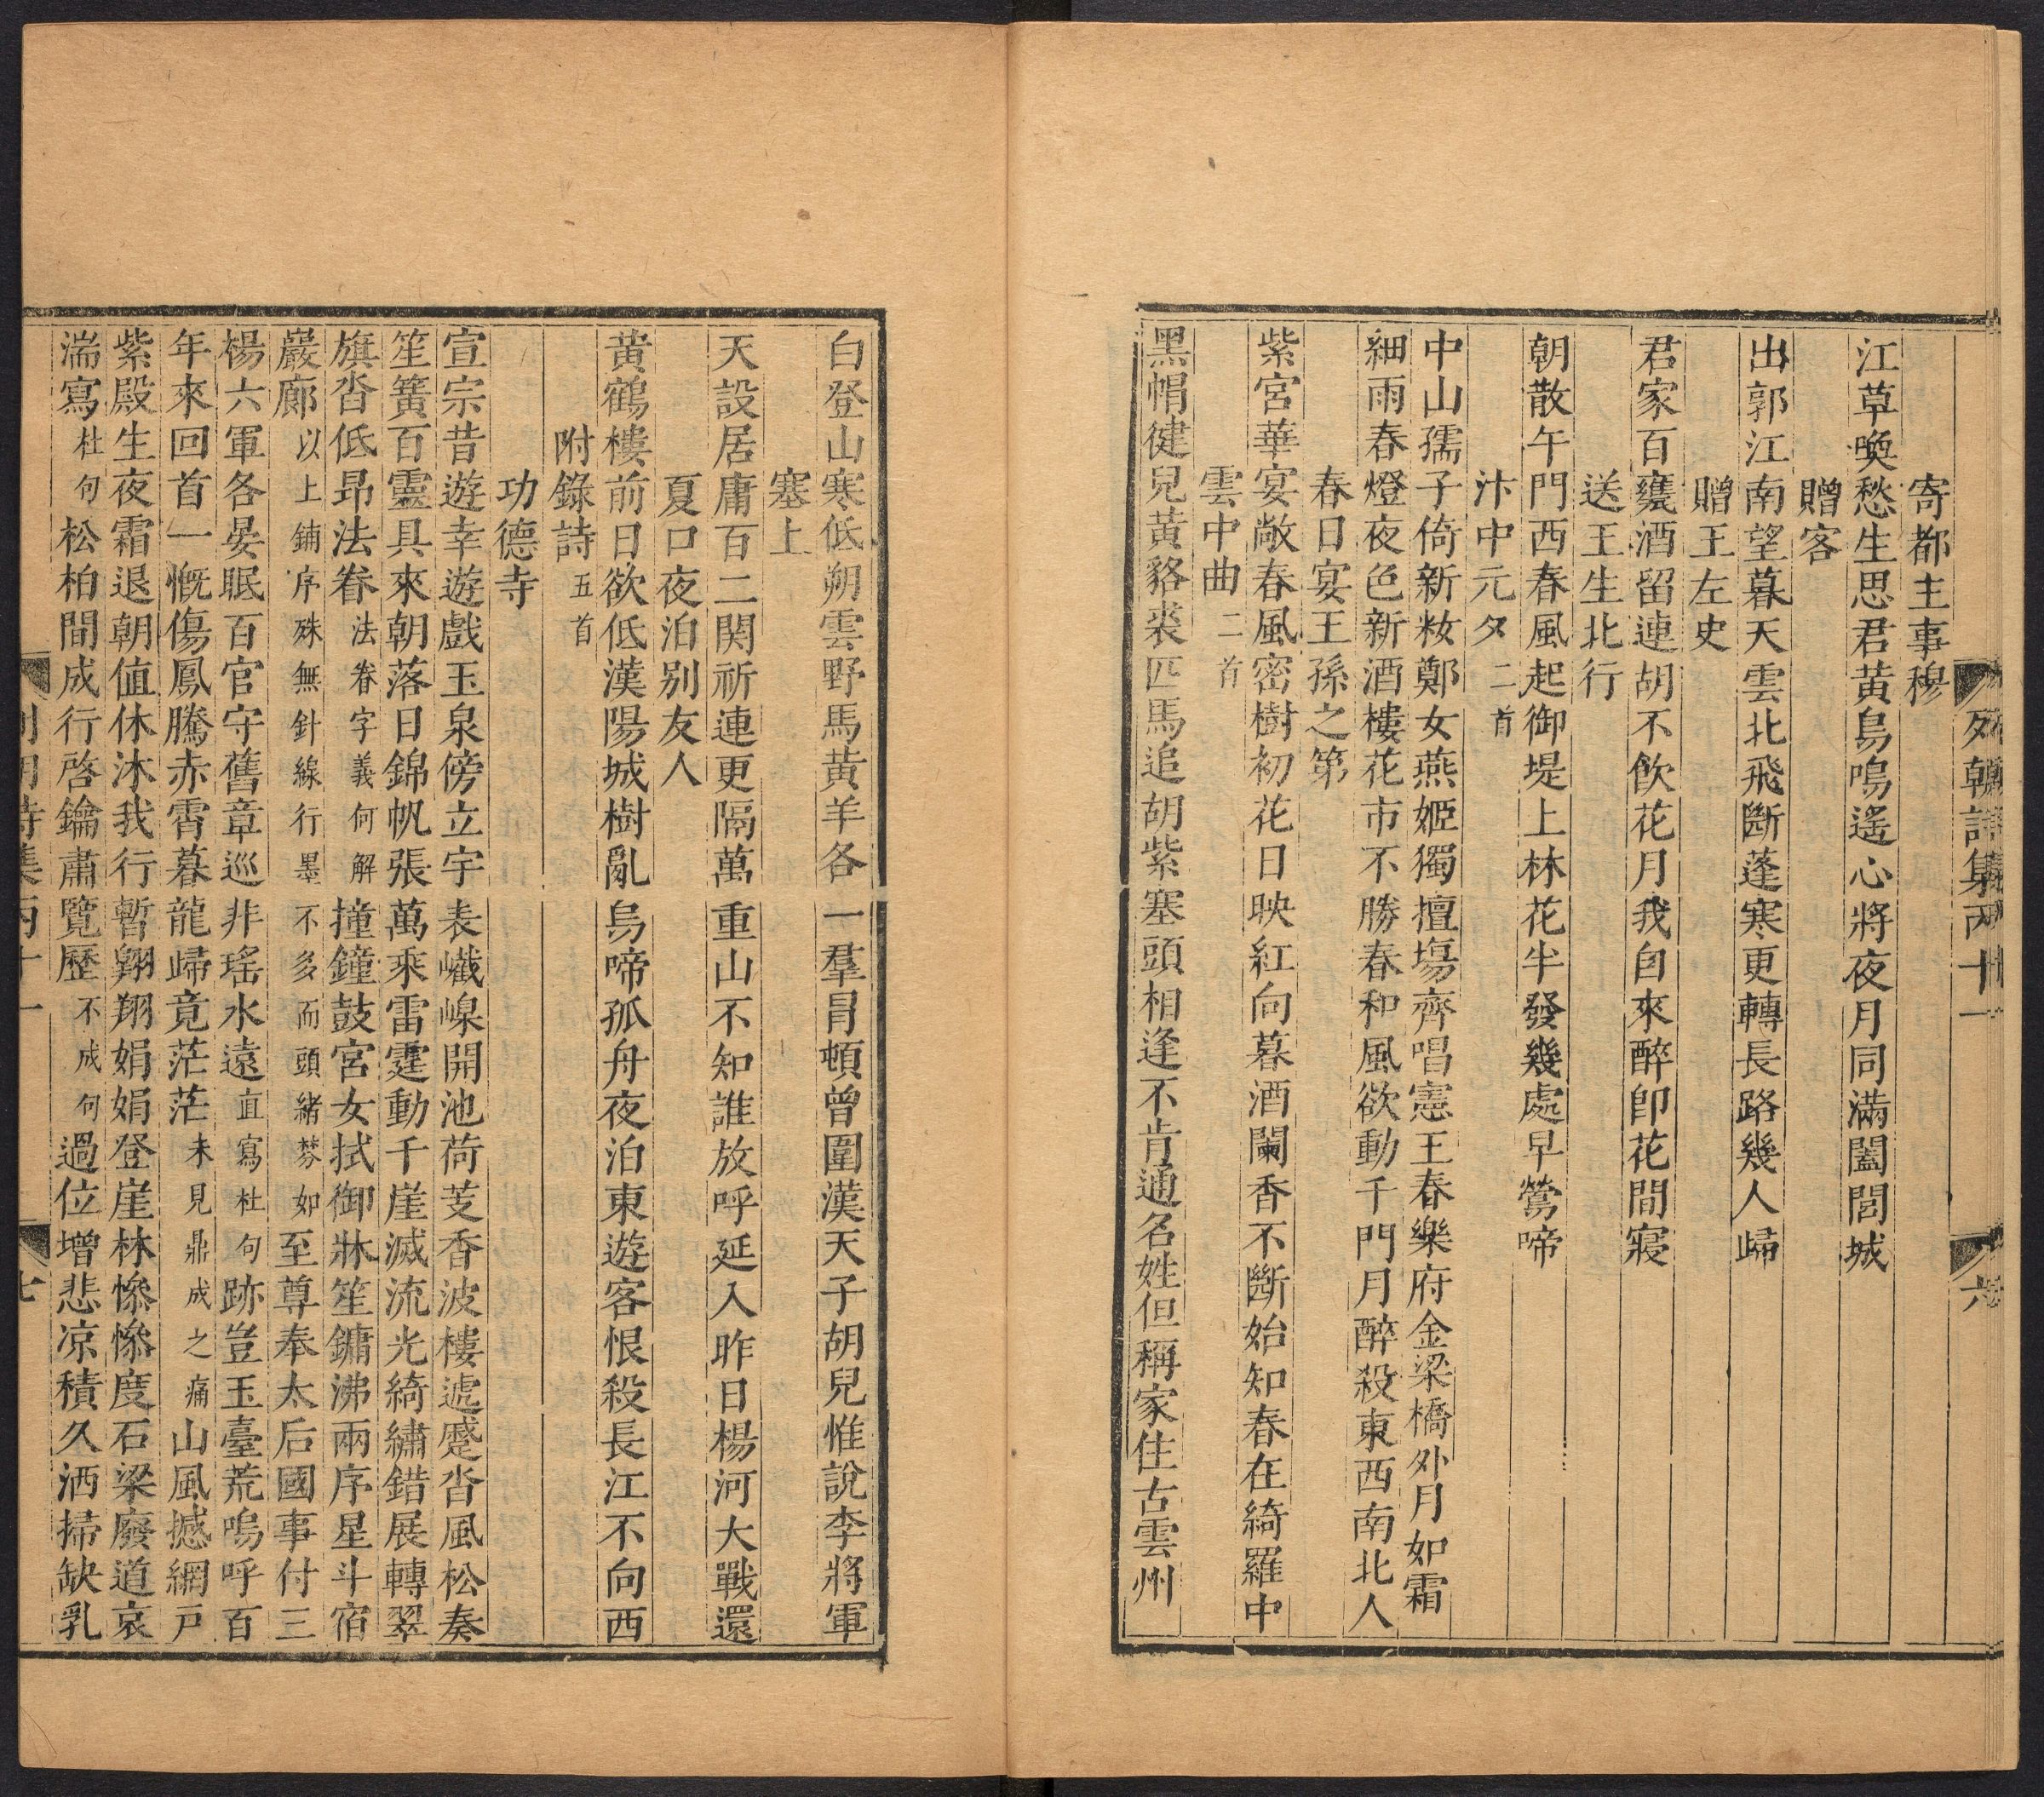 列朝詩集丙十一
六
寄都主事穆
江草喚愁生思君黃鳥鳴遙心將夜月同滿闔閭城
贈客
出郭江南望暮天雲北飛斷蓬寒更轉長路幾人歸
贈王左史
君家百甕酒留連胡不飲花月我自來醉卽花間寢
送王生北行
朝散午門西春風起御堤上林花半發幾處早鶯啼
汴中元夕二首
中山孺子倚新妝鄭女燕姬獨擅場齊唱憲王春樂府金梁橋外月如霜
細雨春燈夜色新酒樓花市不勝春和風欲動千門月醉殺東西南北人
春日宴王孫之第
紫宮華宴敞春風密樹初花日映紅向暮酒闌香不斷始知春在綺羅中
雲中曲二首
黑帽健兒黃貉裘匹馬追胡紫塞頭相逢不肯通名姓但稱家住古雲州
白登山寒低朔雲野馬黃羊各一羣冒頓曾圍漢天子胡兒惟說李將軍
塞上
天設居庸百二関祈連更隔萬重山不知誰放呼延入昨日楊河大戰還
夏口夜泊别友人
黃鶴樓前日欲低漢陽城樹亂烏啼孤舟夜泊東遊客恨殺長江不向西
附錄詩五首
功德寺
宣宗昔遊幸遊戲玉泉傍立宇表巀嵲開池荷芰香波樓遞蹙沓風松奏
笙簧百靈具來朝落日錦帆張萬乘雷霆動千崖滅流光綺繡錯展轉翠
旗沓低昂法眷法眷字義何解撞鐘鼓宮女拭御牀笙鏞沸兩序星斗宿
巖廊以上鋪序殊無針線行墨不多而頭緒棼如至尊奉太后國事付三
楊六軍各晏眠百官守舊章巡非瑤水遠直寫杜句跡豈玉臺荒嗚呼百
年來回首一慨傷鳳騰赤霄暮龍歸竟茫茫未見鼎成之痛山風撼網戸
紫殿生夜霜退朝值休沐我行暫翺翔娟娟登崖林慘慘度石梁廢道哀
湍寫杜句松柏間成行啓鑰肅覽歷不成句過位增悲凉積久洒掃缺乳
列朝詩集丙十一
七